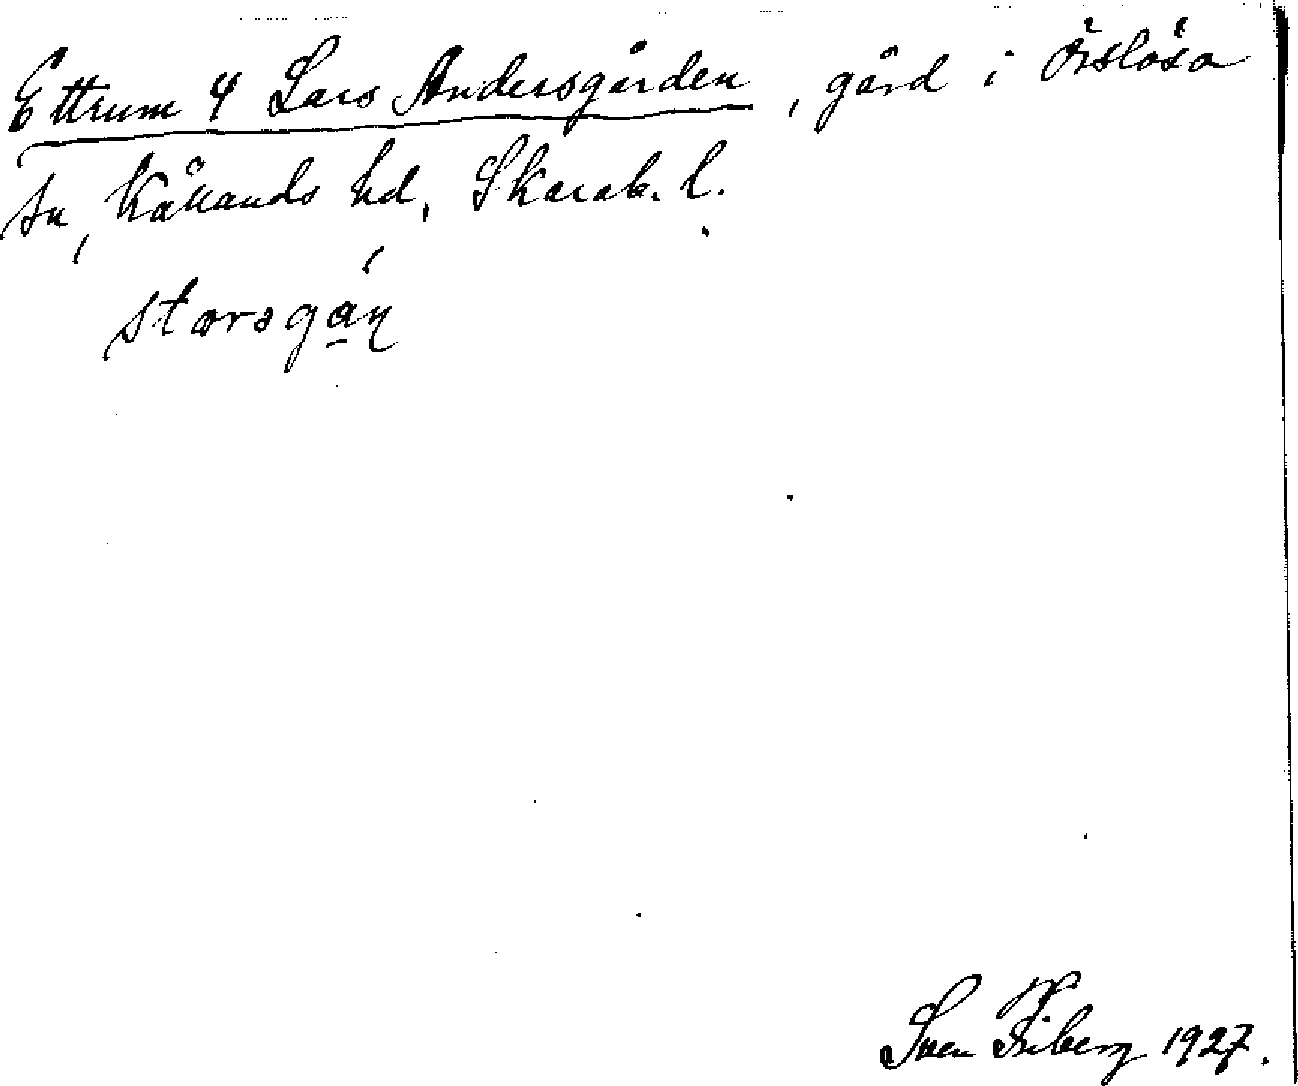 Ettrum 4 Lars Andersgården, gård i Örslösa
sn, Kållands hd, Skarab. l.
storsgán
Sven Friberg 1927.